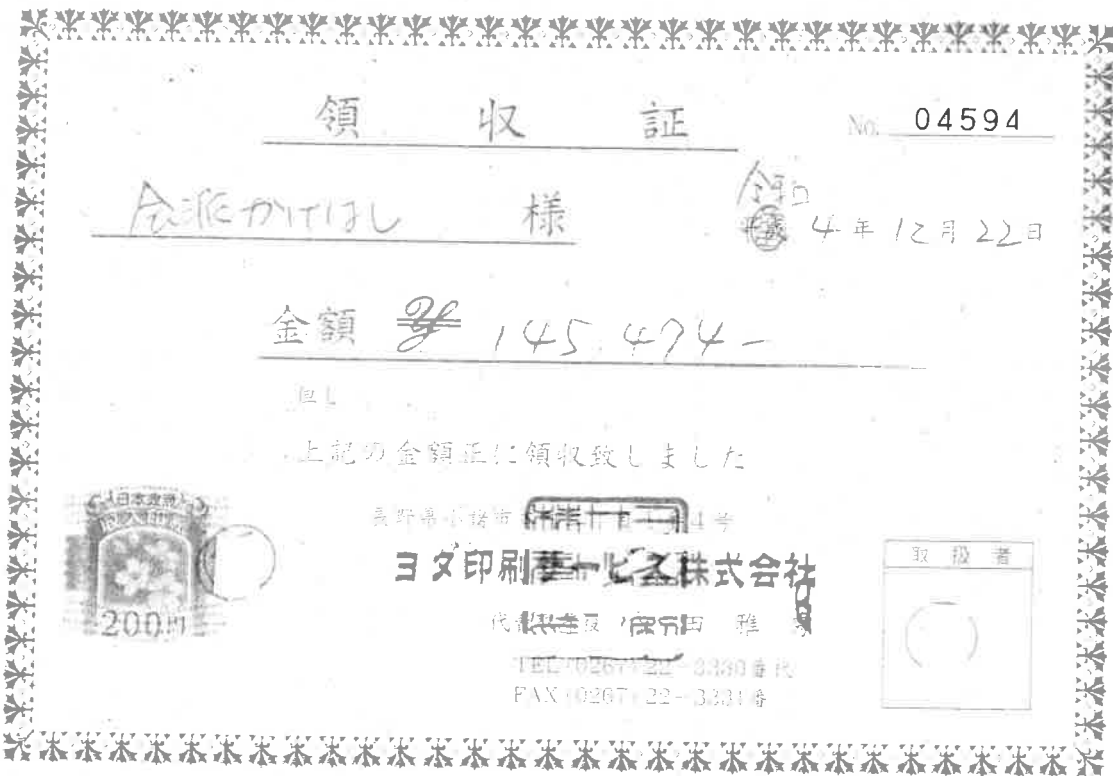 領収証
No. 04594
会派かけはし 様
令和
平成 4年12月22日
金額 ¥ 145,474-
但し
上記の金額正に領収致しました
長野県小諸市
ヨダ印刷サービス株式会社
TEL (0267) 22-3330番代
FAX (0267) 22-3331番
取扱者
日本政府
収入印紙
200円